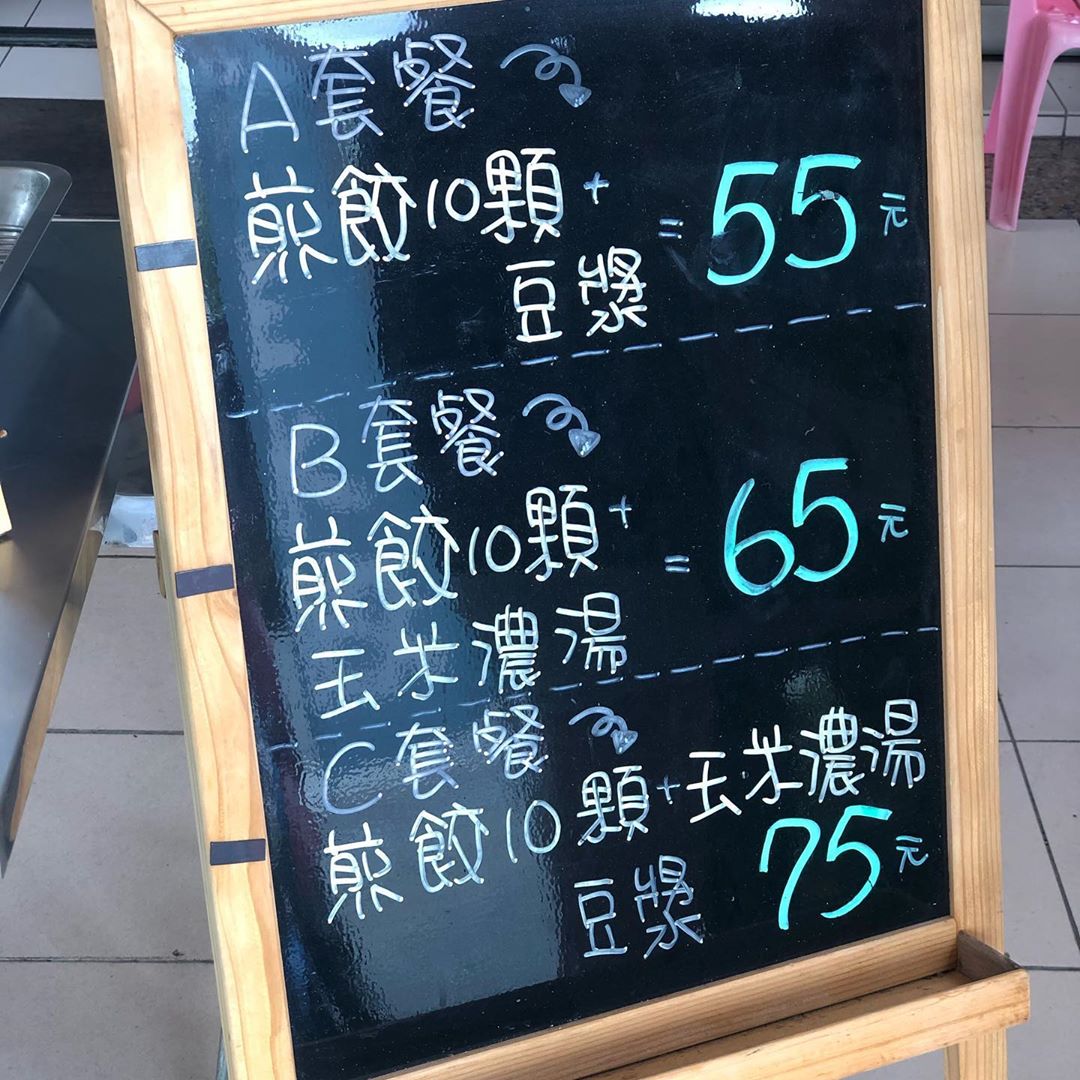 A套餐
煎餃10顆+
豆漿
=55元
B套餐
煎餃10顆+
玉米濃湯
=65元
C套餐
煎餃10顆+玉米濃湯
豆漿
75元